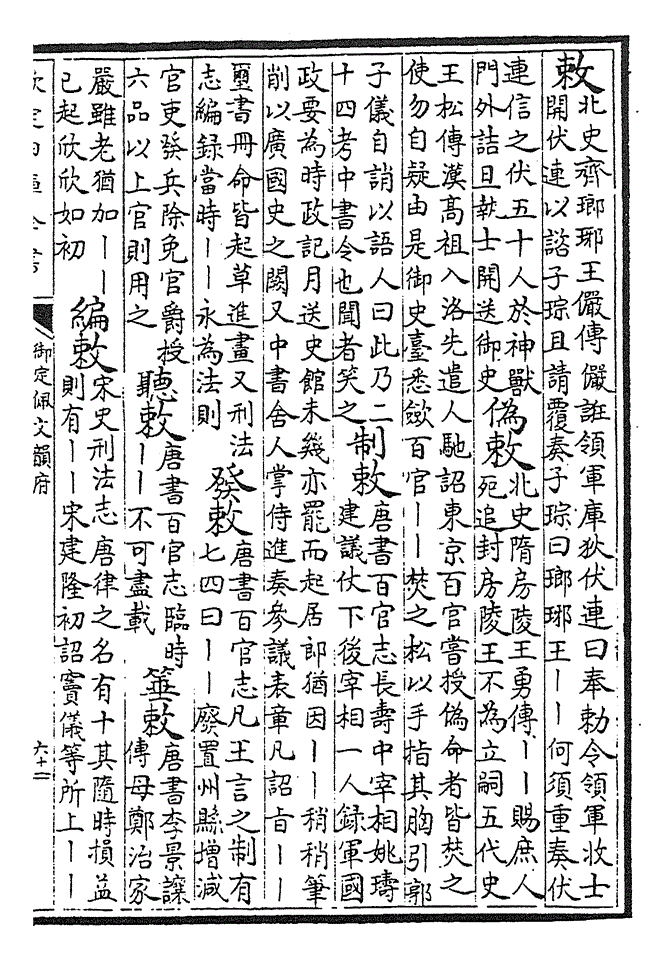 敕
北史齊瑯琊王儼傳儼誑領軍庫狄伏連曰奉勅令領軍收士
開伏連以諮子琮且請覆奏子琮曰瑯琊王丨丨何須重奏伏
連信之伏五十人於神獸
門外詰旦執士開送御史
偽敕
北史隋房陵王勇傳丨丨賜庶人
死追封房陵王不為立嗣五代史
王松傳漢高祖入洛先遣人馳詔東京百官嘗授偽命者皆焚之
使勿自疑由是御史臺悉斂百官丨丨焚之松以手指其胸引郭
子儀自誚以語人曰此乃二
十四考中書令也聞者笑之
制敕
唐書百官志長壽中宰相姚璹
建議仗下後宰相一人錄軍國
政要為時政記月送史館未幾亦罷而起居郎猶因丨丨稍稍筆
削以廣國史之闕又中書舍人掌侍進奏參議表章凡詔旨丨丨
璽書冊命皆起草進畫又刑法
志編錄當時丨丨永為法則
發敕
唐書百官志凡王言之制有
七四曰丨丨廢置州縣增減
官吏發兵除免官爵授
六品以上官則用之
聽敕
唐書百官志臨時
丨丨不可盡載
箠敕
唐書李景讓
傳母鄭治家
嚴雖老猶加丨丨
已起欣欣如初
編敕
宋史刑法志唐律之名有十其隨時損益
則有丨丨宋建隆初詔竇儀等所上丨丨
欽定四庫全書
御定佩文韻府
六十二